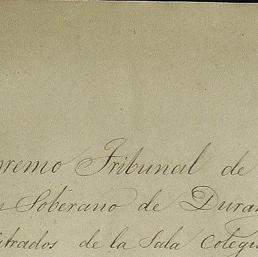 premo Tribunal de
y Soberano de Duran
istrados de la Sala Colegi